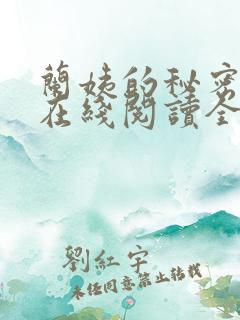 蘭姨的秘密
在綫閱讀全
劉紅宇
未經同意禁止轉載